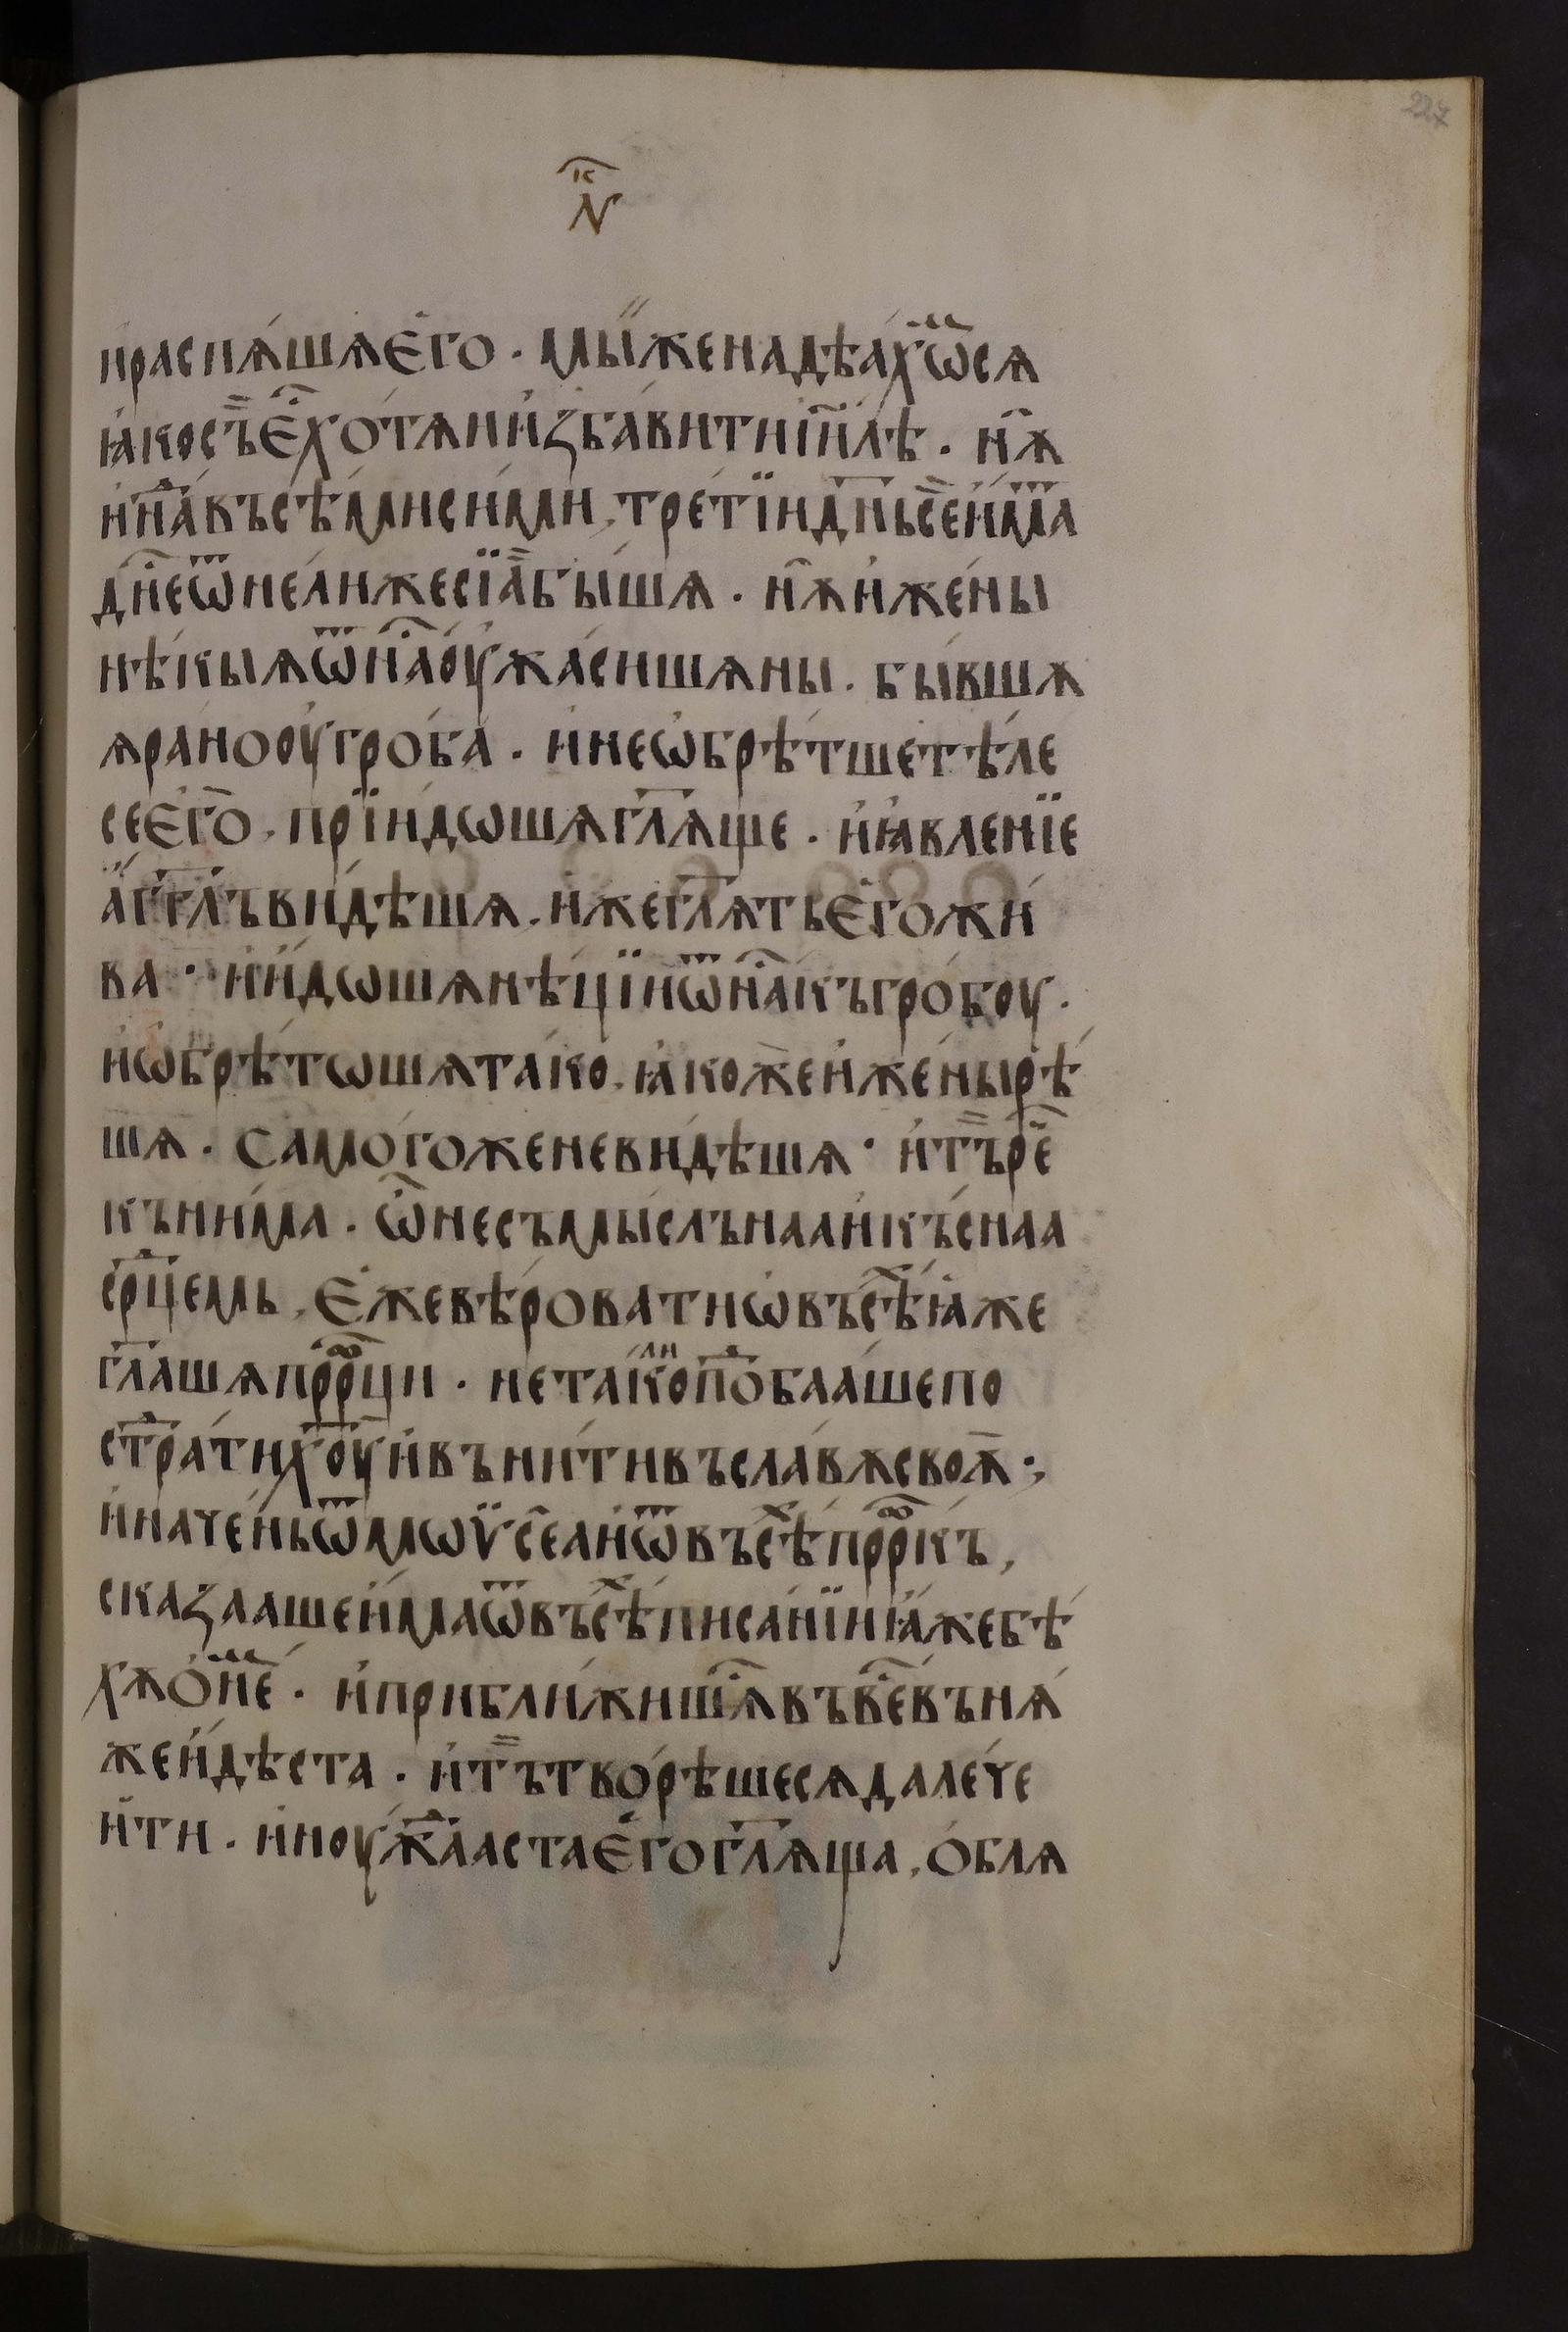 227
лк҃
и҆распѧ́шѧе҆го· мы́женадѣа́хѡ҆мсѧ
ꙗ҆́косъе҆́стхотѧ́ии҆збавитиі҆и҃лѣ· нѫ҃
и҆надъвъсѣ́мисими, тре́тїидн҃ьсеи҆́матъ
дн҃еѿне́лижесїабы́шѧ· нѫ҃и҆жены́
нѣ́кыѧѿна́соу҆жаси́шѧны· бы́вшѧ
ѧра́нооу҆гро́ба· и҆нео҆брѣ́тшетѣле
сее҆го̀, прїидѡшѧгл҃ѧще· и҆ꙗ҆вленїе
а҆гг҃лъви́дѣшѧ, и҆жегл҃ѧтье҆го̀жи́
ва· и҆и҆дѡшѧнѣ́цїиѿна́скъгро́боу·
и҆ѡ҆брѣ́тѡшѧта́ко, ꙗ҆́кожеи҆жены́рѣ́
шѧ· самогоженеви́дѣшѧ· и҆търе҃
къни́ма· ѡ҆несъмы́слънааи҆къ́снаа
ср҃цемь, е҆́жевѣ́роватиѡ҆въсѣхꙗ҆́же
гл҃ашѧпрⷪ҇роци· нета́колипоⷣбаа́шепо
страⷣтихоу҃и҆вънитивъсла́вѫсвоѫ̀·,
и҆наче́ньѿмѡѵ̈сеаи҆ѿвъсѣхпрⷪ҇рокъ,
сказаашеи҆маѿвъсѣхписанїиꙗ҆́жебѣ
хѫо҆не́мъ· и҆прибли́жишѧсѧвъвесьвънѫ́
жеи҆дѣста· и҆тътво́рѣшесѧдале́че
и҆ти· и҆ноуждаастае҆гогл҃ѧща, о҆блѧ